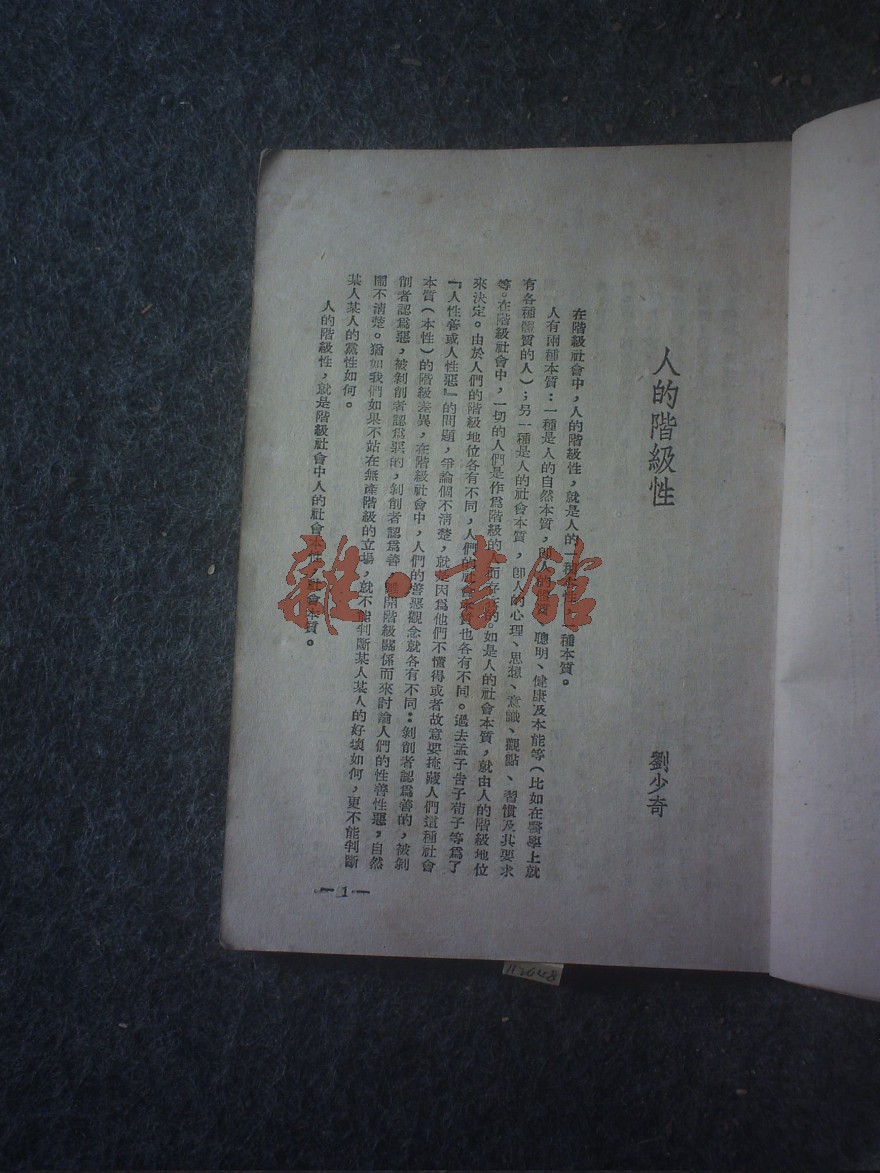 人的階級性
劉少奇
在階級社會中，人的階級性，就是人的一種本性，一種本質。
人有兩種本質：一種是人的自然本質，卽人的體質、聰明、健康及本能等（比如在醫學上就
有各種體質的人）；另一種是人的社會本質，卽人的心理、思想、意識、觀點、習慣及其要求
等。在階級社會中，一切的人們是作爲階級的人而存在的。如是人的社會本質，就由人的階級地位
來決定。由於人們的階級地位各有不同，人們的社會本質也各有不同。過去孟子告子荀子等爲了
『人性善或人性惡』的問題，爭論個不清楚，就是因爲他們不懂得或者故意要掩藏人們這種社會
本質（本性）的階級差異，在階級社會中，人們的善惡觀念就各有不同：剝削者認爲善的，被剝
削者認爲惡，被剝削者認爲惡的，剝削者認爲善，離開階級關係而來討論人們的性善性惡，自然
鬧不清楚。猶如我們如果不站在無產階級的立場，就不能判斷某人某人的好壞如何，更不能判斷
某人某人的黨性如何。
人的階級性，就是階級社會中人的社會本性，社會本質。
—1—
雜·書館